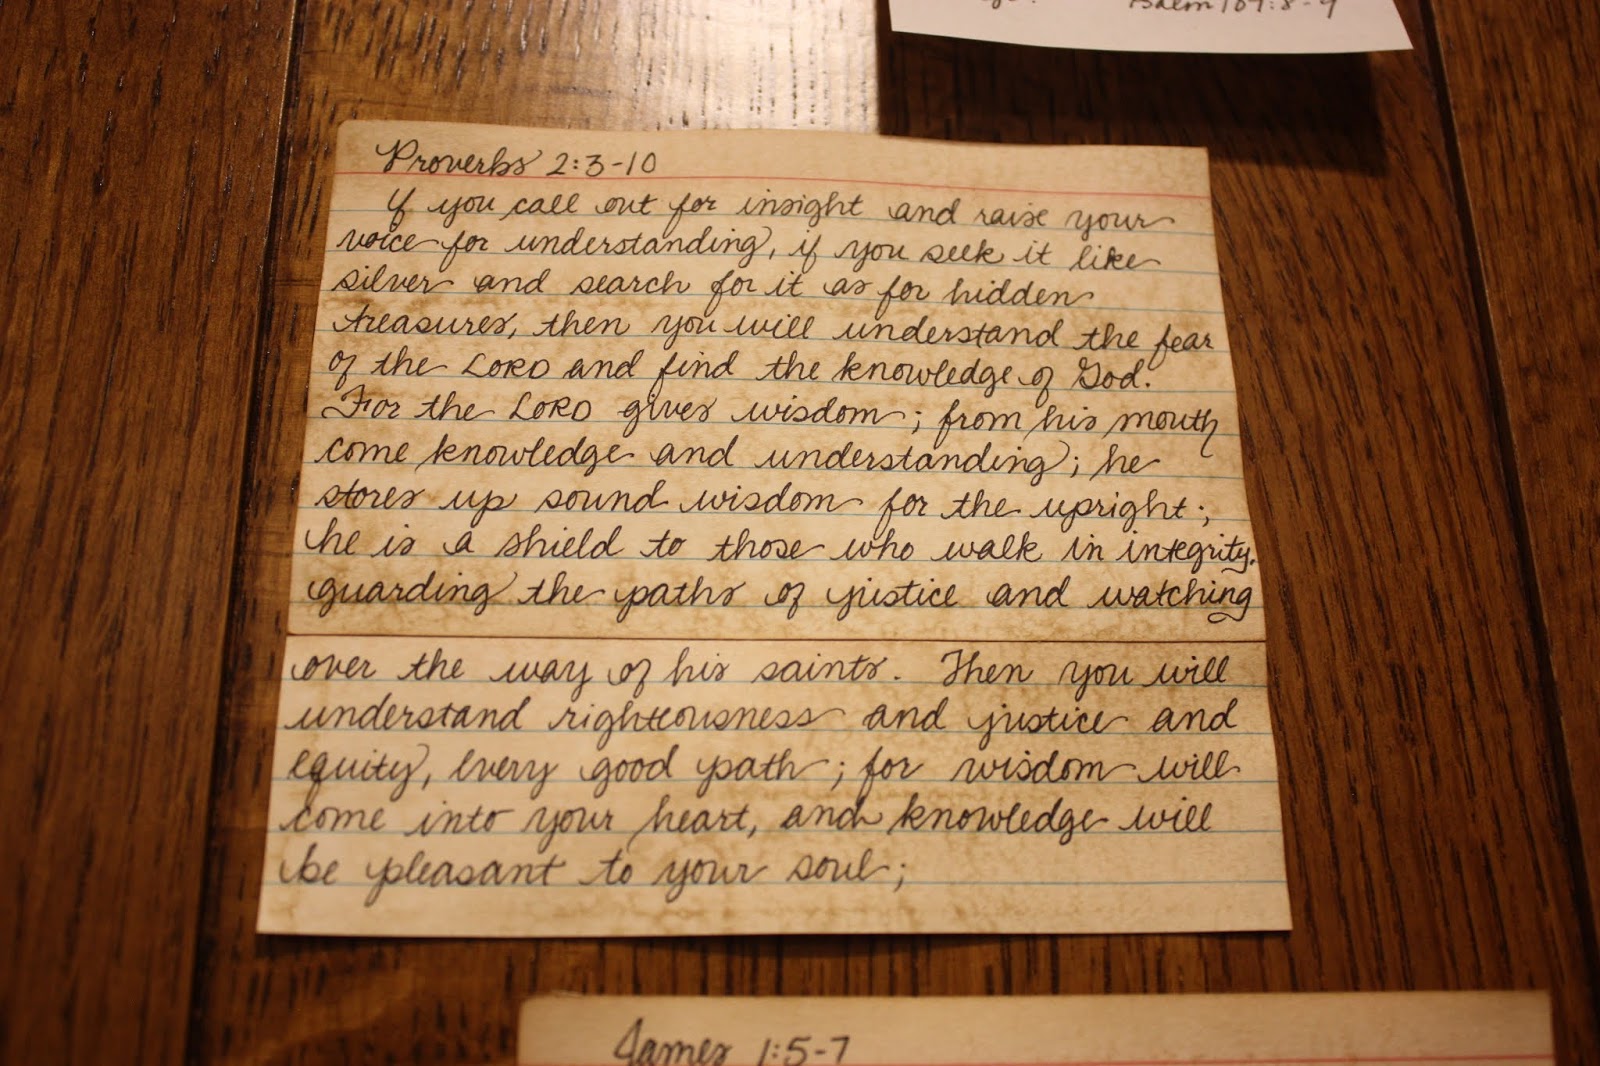 Psalm 107:8-9
Proverbs 2:3-10
If you call out for insight and raise your
voice for understanding, if you seek it like
silver and search for it as for hidden
treasures, then you will understand the fear
of the LORD and find the knowledge of God.
For the LORD gives wisdom; from his mouth
come knowledge and understanding; he
stores up sound wisdom for the upright;
he is a shield to those who walk in integrity,
guarding the paths of justice and watching
over the way of his saints. Then you will
understand righteousness and justice and
equity, every good path; for wisdom will
come into your heart, and knowledge will
be pleasant to your soul;
James 1:5-7